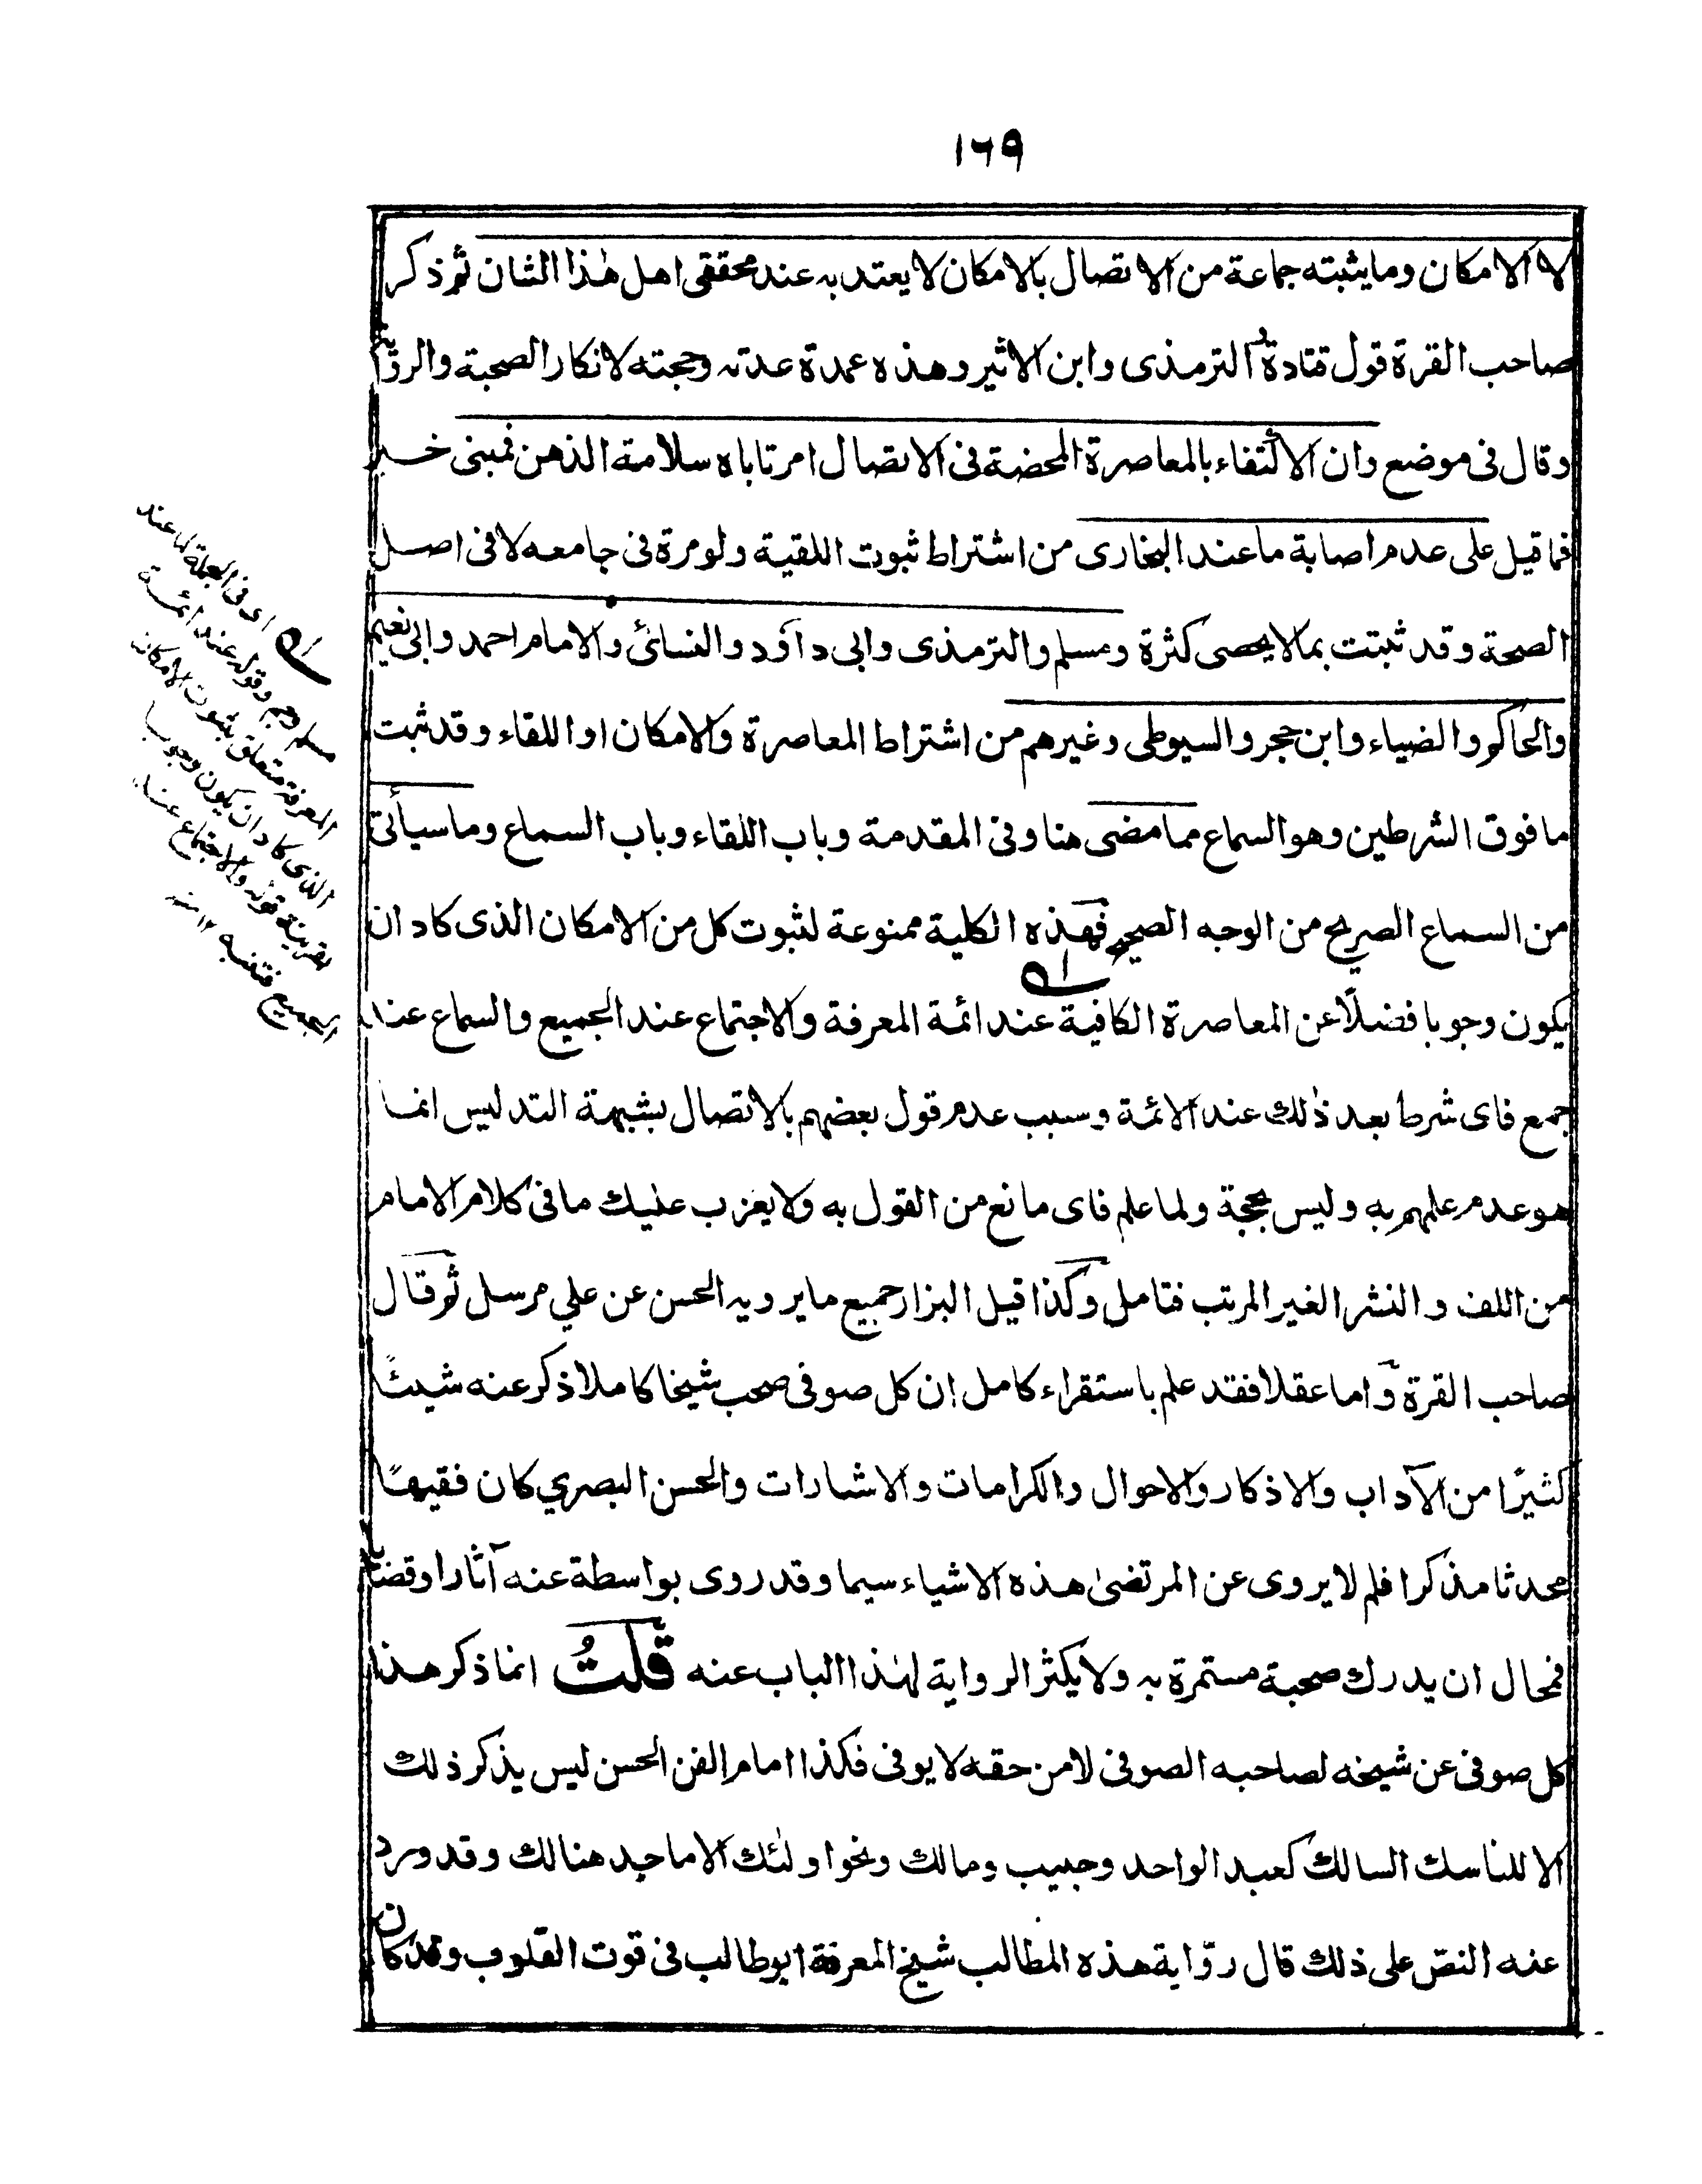 ١٦٩
لا الامكان وما يثبته جماعة من الاتصال بالامكان لا يعتد به عند محققى اهل هٰذا الشان ثم ذكر
صاحب القرة قول قتادة و الترمذى وابن الاثير وهذه عمدة عدته وحجته لانكار الصحبة والرؤية
وقال فى موضع وان الاكتفاء بالمعاصرة المحضة فى الاتصال امر تاباه سلامة الذهن فمبنى خبر
فما قيل على عدم اصابة ما عند البخارى من اشتراط ثبوت اللقية ولو مرة فى جامعه لا فى اصل
الصحة وقد ثبتت بما لا يحصى كثرة ومسلم والترمذى وابى داؤد والنسائى والامام احمد وابى نعيم
والحاكم والضياء وابن حجر والسيوطى وغيرهم من اشتراط المعاصرة والامكان او اللقاء وقد ثبت
ما فوق الشرطين وهو السماع مما مضى هنا وفى المقدمة وباب اللقاء وباب السماع وما سيأتى
من السماع الصريح من الوجه الصحيح فهذه الكلية ممنوعة لثبوت كل من الامكان الذى كاد ان
يكون وجوبا فضلًا عن المعاصرة الكافية عند ائمة المعرفة والاجتماع عند الجميع والسماع عند
جمع فاى شرط بعد ذٰلك عند الائمة وسبب عدم قول بعضهم بالاتصال بشبهة التدليس انما
هو عدم علمهم به وليس بحجة ولما علم فاى مانع من القول به ولا يعزب عليك ما فى كلام الامام
من اللف والنشر الغير المرتب فتامل وكذا قيل البزار جميع ما يرويه الحسن عن علي مرسل ثم قال
صاحب القرة واما عقلا فقد علم باستقراء كامل ان كل صوفى صحب شيخا كاملا ذكر عنه شيئًا
كثيرًا من الآداب والاذكار والاحوال والكرامات والاشارات والحسن البصري كان فقيهًا
محدثا مذكرا فلم لا يروى عن المرتضىٰ هذه الاشياء سيما وقد روى بواسطة عنه آثارا وقضايا
فمحال ان يدرك صحبة مستمرة به ولا يكثر الرواية لهٰذا الباب عنه قلتُ انما ذكر هذا
كل صوفى عن شيخه لصاحبه الصوفى لا من حقه لا يوفى فكذا امام الفن الحسن ليس يذكر ذلك
الا للناسك السالك كعبد الواحد وحبيب ومالك ونحو اولئك الاماجد هنالك وقد ورد
عنه النص على ذلك قال روّاية هذه المطالب شيخ المعرفة ابو طالب فى قوت القلوب وقد كان
اى فى الجملة لما عند
مسلم وجم وقوله عند ائمة
المعرفة متعلق بثبوت الامكان
الذى كاد ان يكون وجوبا
بقرينة قوله والاجتماع عند
الجميع فتنبه ١٢ منه